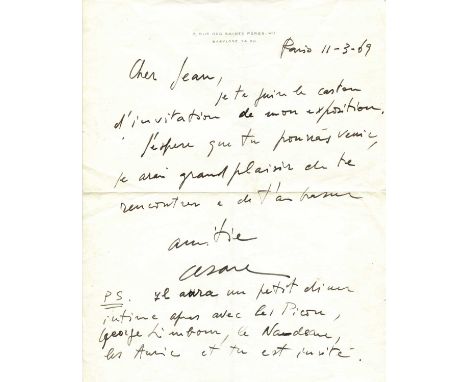 RUE DES SAINTS PÈRES, VII
BABYLONE
Paris 11-3-69
Cher Jean,
je te joins le carton
d'invitation de mon exposition.
J'espere que tu pourras venir,
je avrei grand plaisir de te
rencontrer e de t'anbrasser
amitie
Cesare
PS. Yl aura un petit diner
intime apres avec les Picon,
George Limbour, le Nadeau,
les Amic et tu est invité.